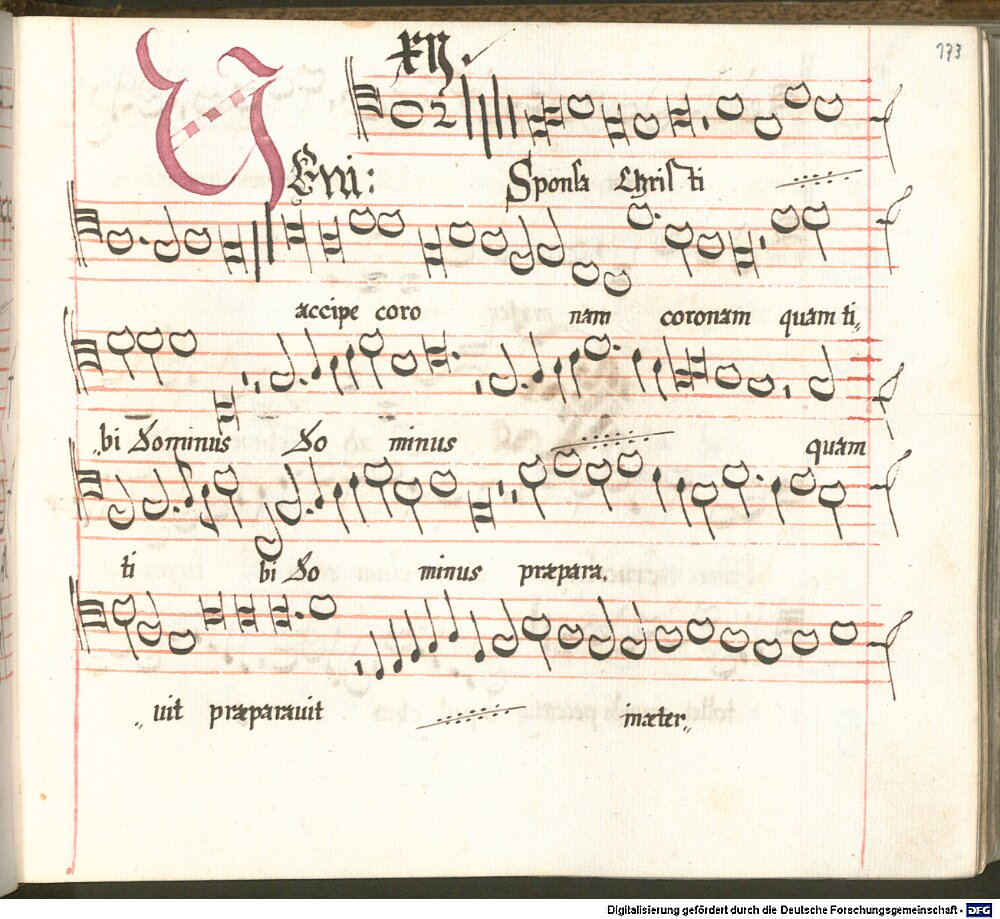 173
XII.
VEni: Sponsa Christi
accipe coro nam coronam quam ti„
„bi Dominus Do minus quam
ti bi Do minus præpara,
„ uit præparauit inæter„
Digitalisierung gefördert durch die Deutsche Forschungsgemeinschaft - DFG